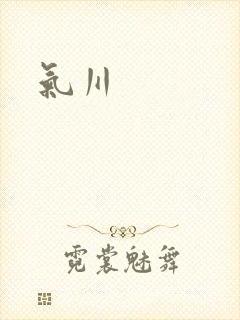 氣川
霓裳魅舞